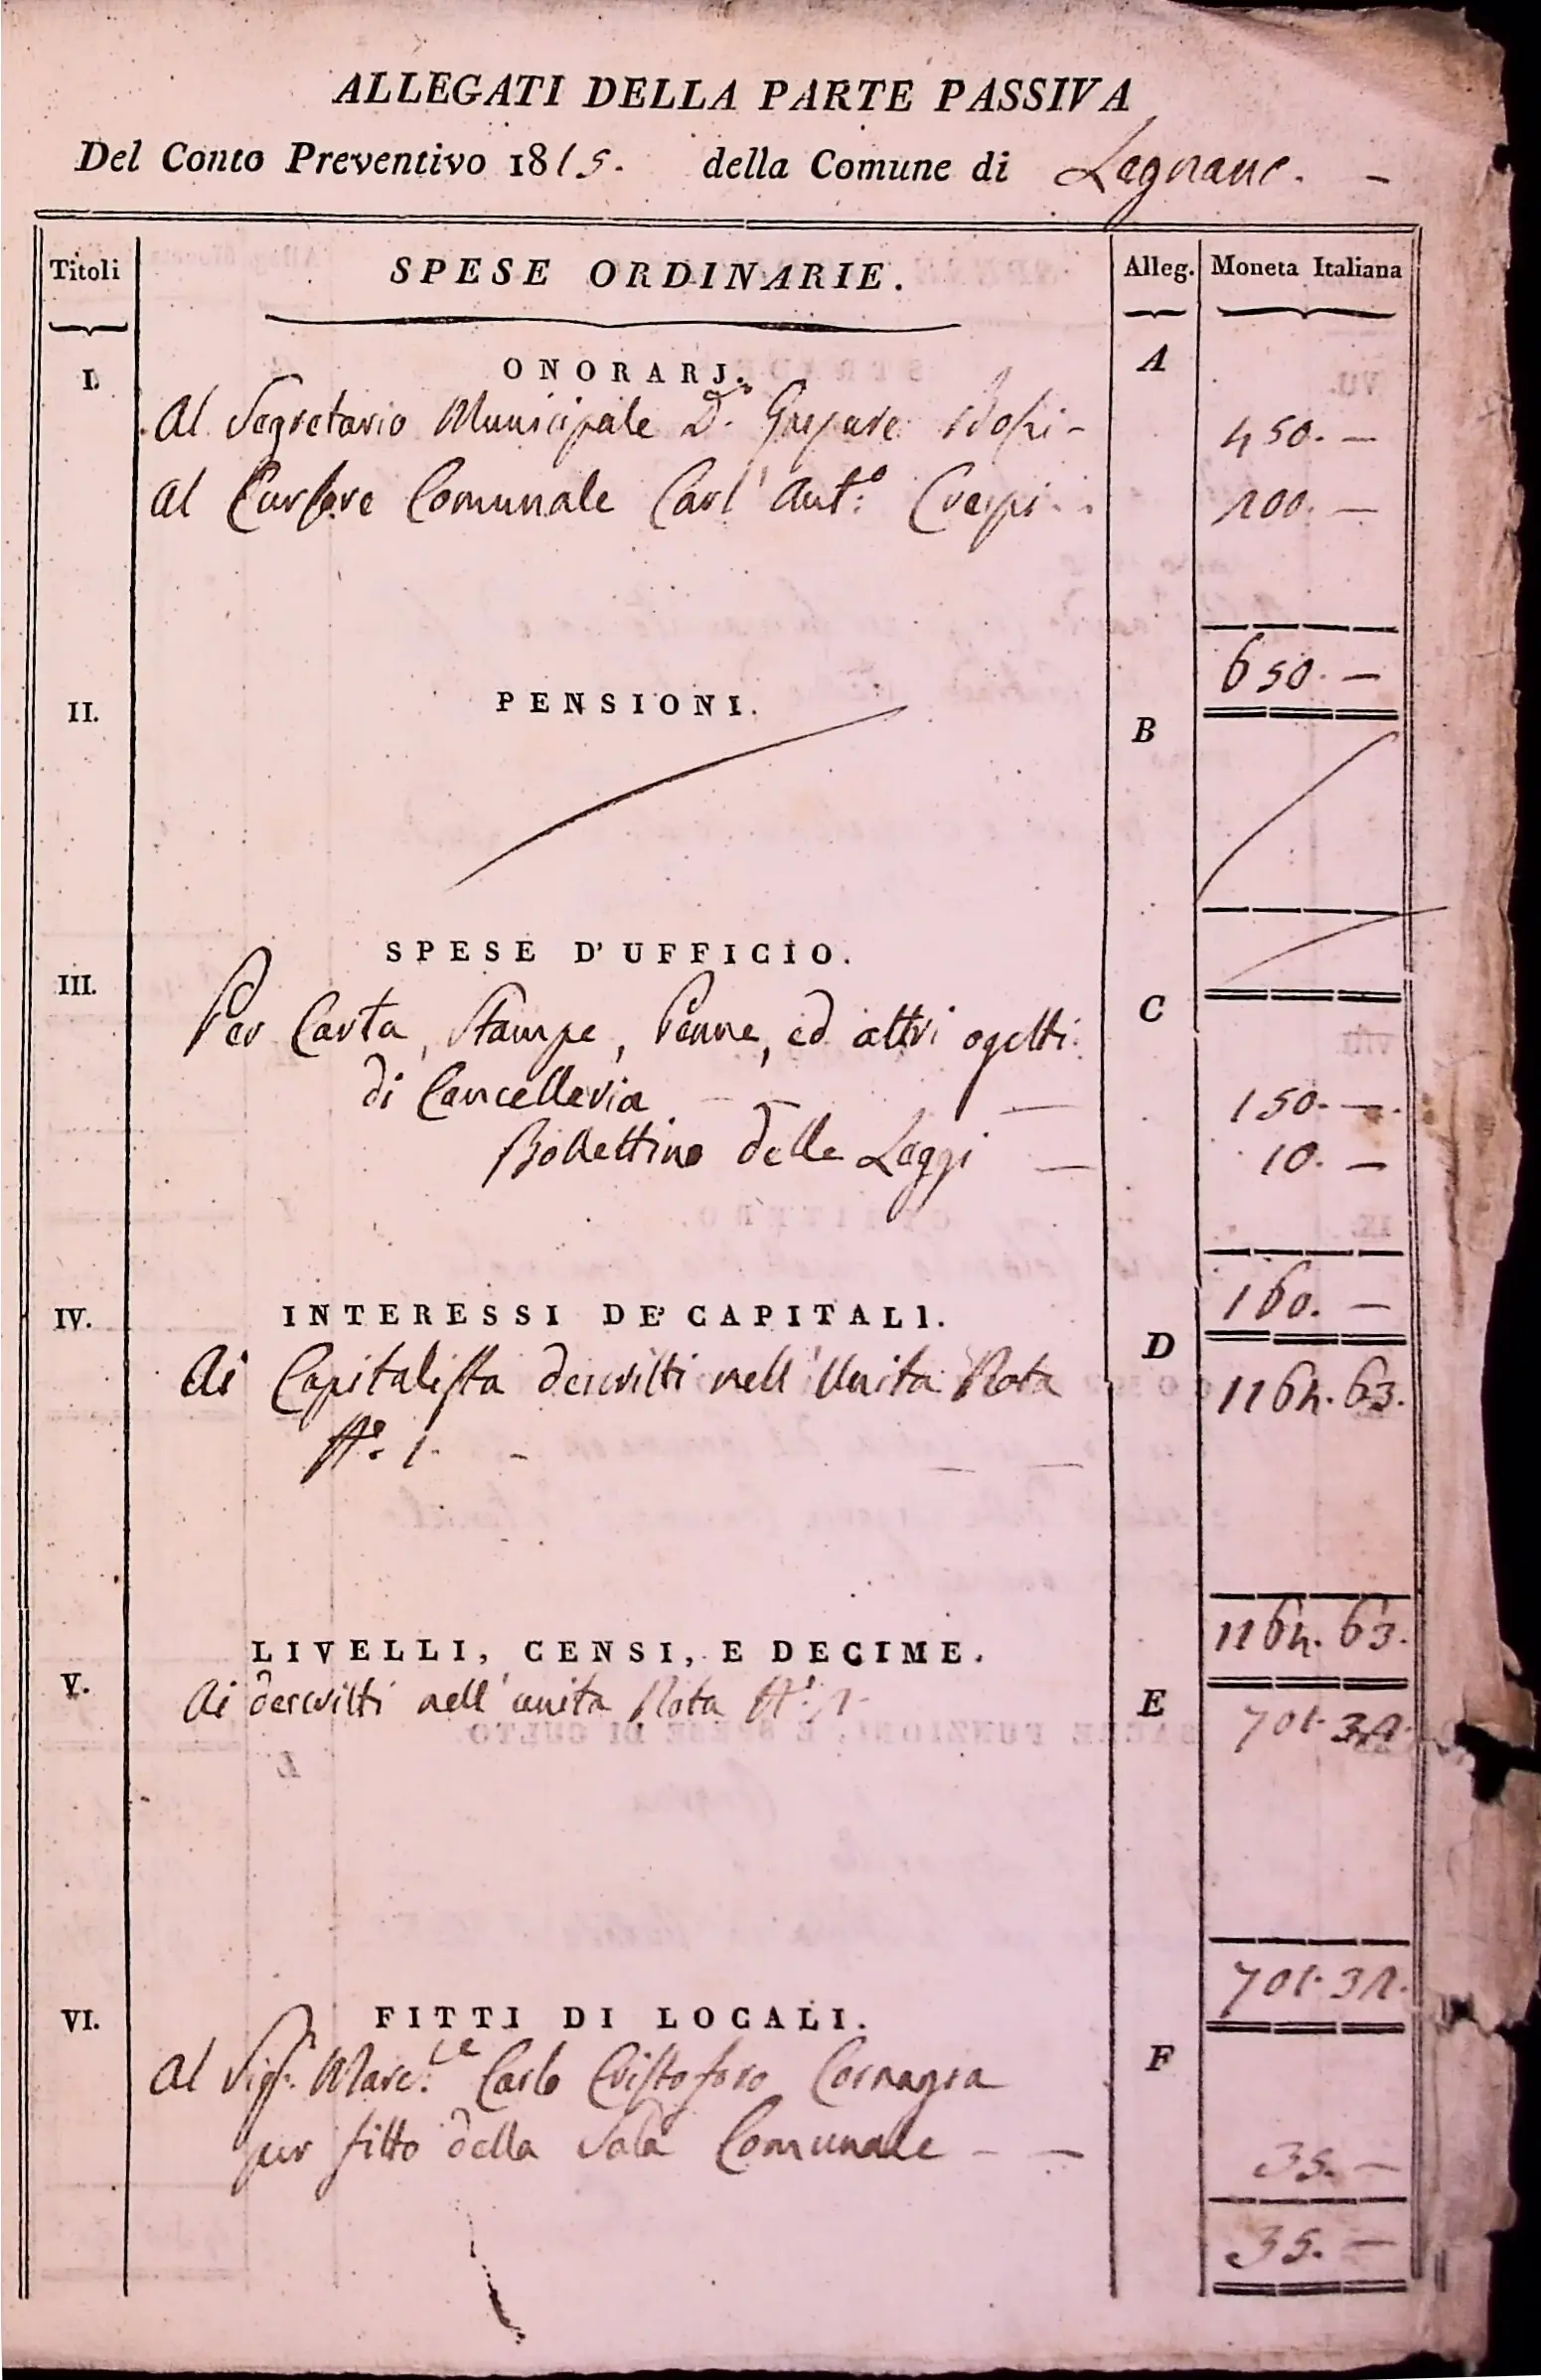 ALLEGATI DELLA PARTE PASSIVA
Del Conto Preventivo 1815. della Comune di Legnano. -
Titoli SPESE ORDINARIE. Alleg. Moneta Italiana
I. ONORARJ. A
Al Segretario Municipale Dn. Gaspare Bossi - 450. -
Al Cursore Comunale Carl'Ant.o Crespi - . 200. -
650. -
II. PENSIONI. B
SPESE D'UFFICIO.
III. C
Per Carta, Stampe, Penne, ed altri ogetti
di Cancelleria - - - 150. -
Bollettino delle Leggi - 10. -
160. -
IV. INTERESSI DE' CAPITALI. D
Ai Capitalista descritti nell'Unita Nota 1164. 63.
N.o 1. - - -
1164. 63.
LIVELLI, CENSI, E DECIME.
V. Ai descritti nell'unita Nota N.o 2. E 701. 32.
701. 32.
VI. FITTI DI LOCALI. F
Al Sig.r Marc.se Carlo Cristoforo Cornagia
per fitto della Sala Comunale - - 35. -
35. -